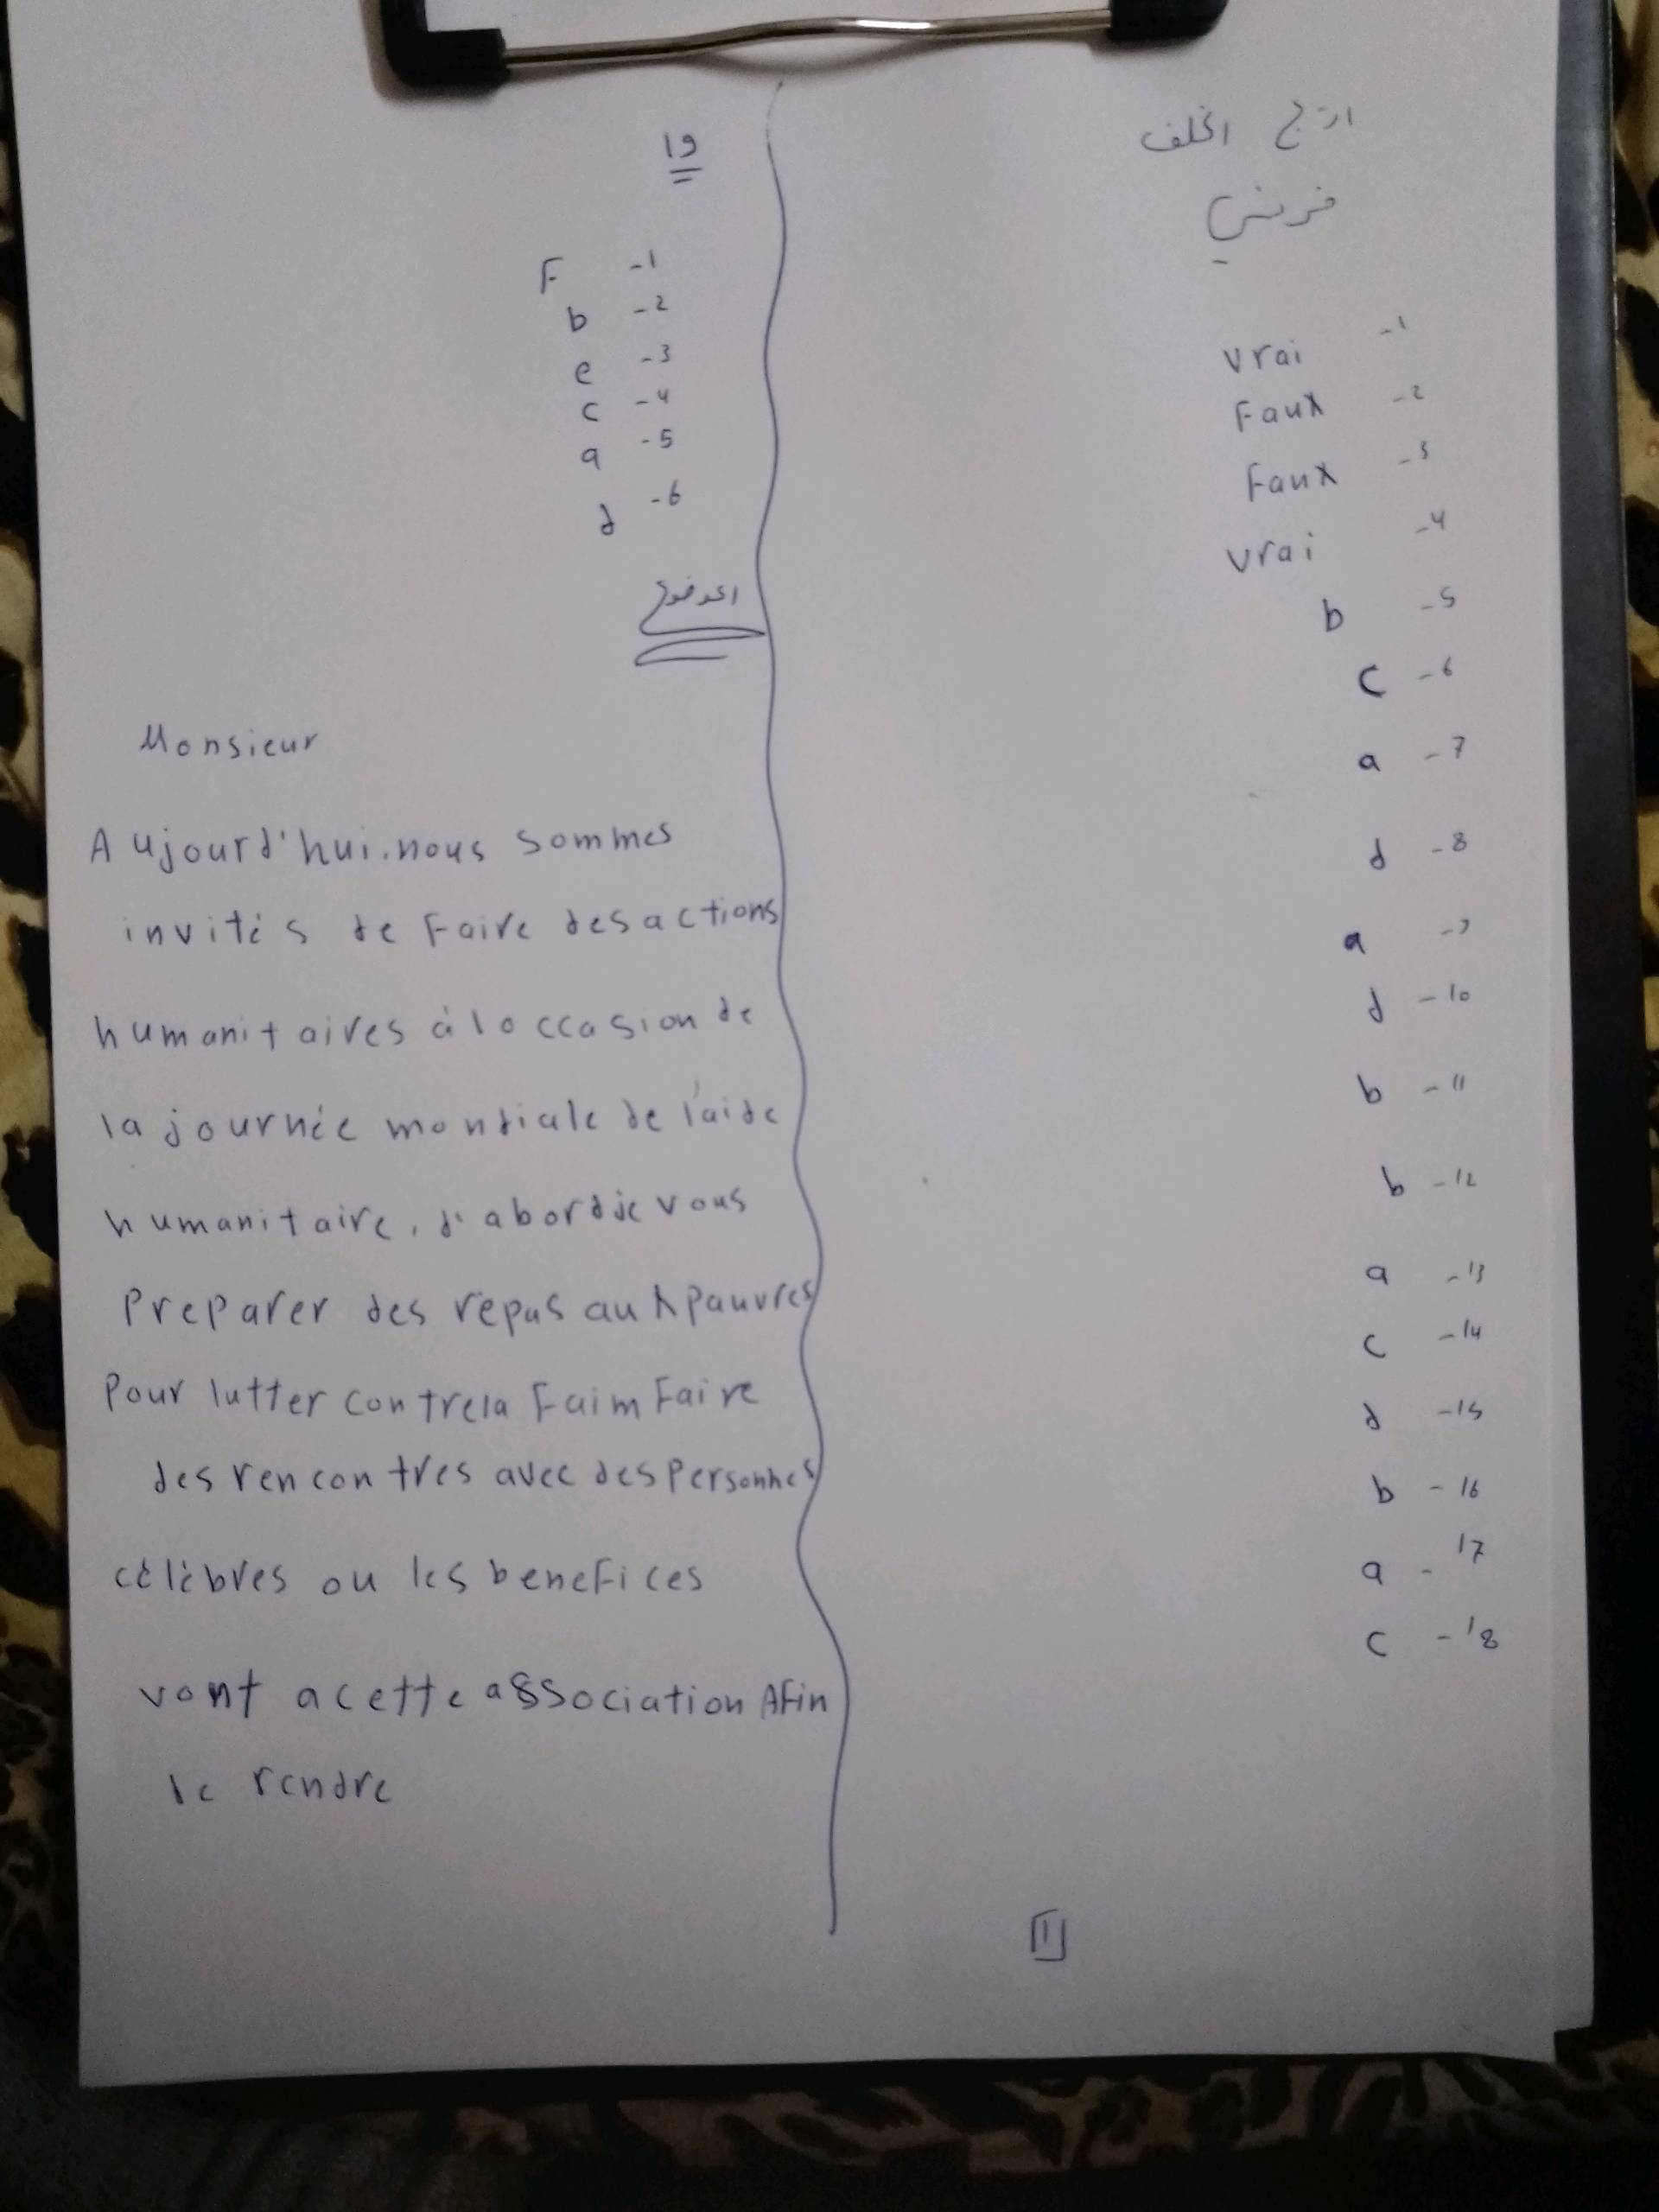 فرنسي
vrai -1
Faux -2
Faux -3
vrai -4
b -5
c -6
a -7
d -8
a -9
d -10
b -11
b -12
a -13
c -14
d -15
b -16
a -17
c -18
1
19
F -1
b -2
e -3
c -4
a -5
d -6
الموضوع
Monsieur
Aujourd'hui.nous sommes
invités de Faire des actions
humanitaires à loccasion de
la journée mondiale de l'aide
humanitaire, d'abord je vous
Preparer des repas aux pauvres
Pour lutter contre la Faim Faire
des rencontres avec des personnes
célèbres ou les beneFices
vont a cette association AFin
le rendre